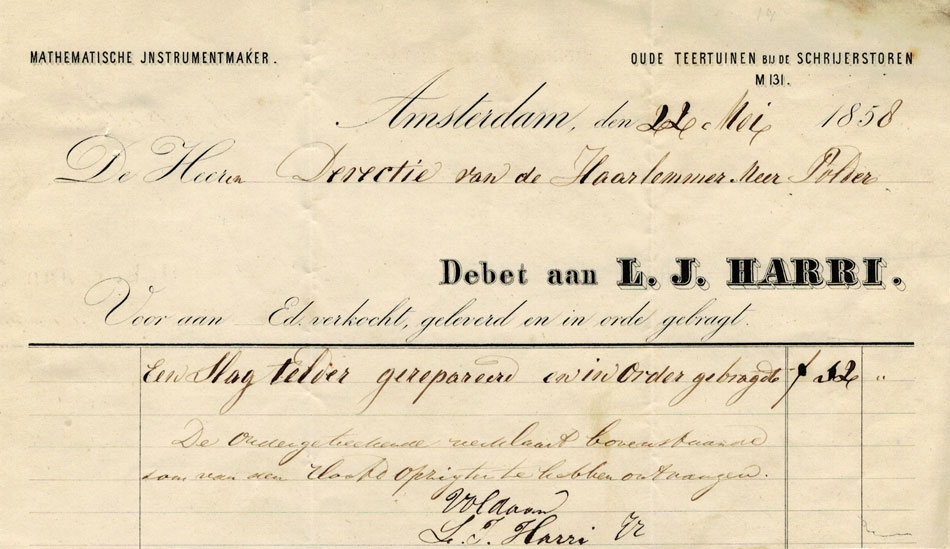 MATHEMATISCHE JNSTRUMENTMAKER.
OUDE TEERTUINEN BIJ DE SCHRIJERSTOREN
M 131.
Amsterdam, den 22 Mei 1858
De Heeren Derectie van de Haarlemmer Meer Polder
Debet aan L. J. HARRI.
Voor aan Ed. verkocht, geleverd en in orde gebragt.
Een Slag telder gerepareerd en in Order gebragdt f 12 "
De Ondergeteekende verklaart bovenstaande
som van den Hoofd Opzigter te hebben ontvangen.
Voldaan
L. J. Harri